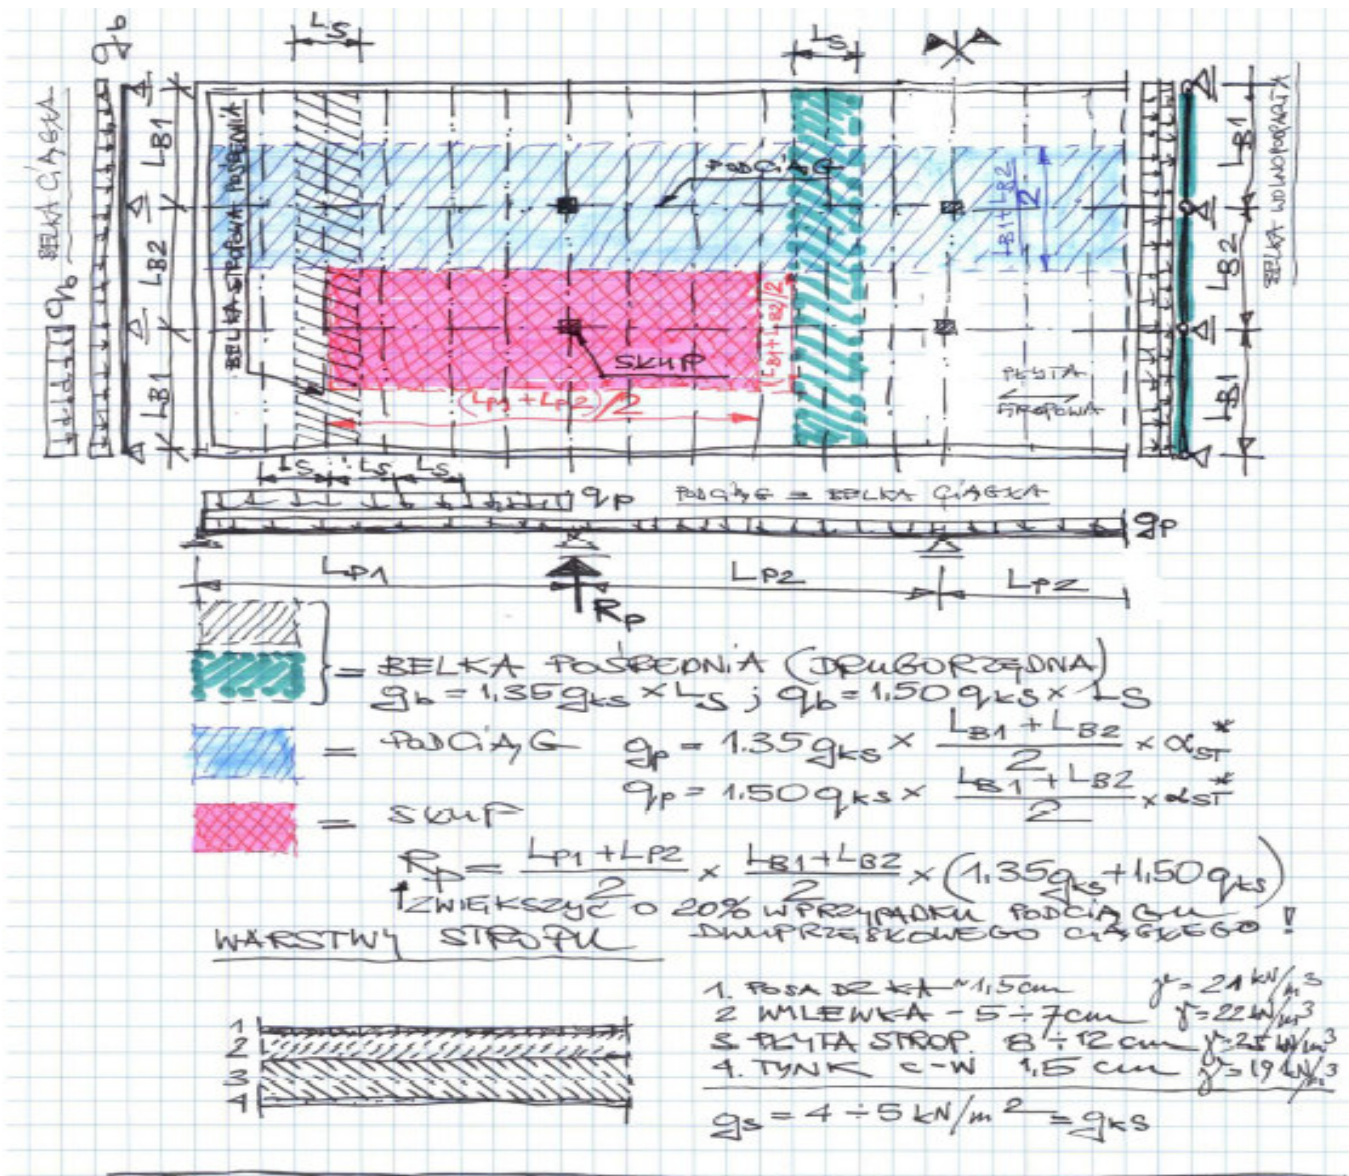 LS
LS
gb
BELKA CIĄGŁA
qb
LB1
LB2
LB1
BELKA STROPOWA POŚREDNIA
PODCIĄG
LB1+LB2
2
LB1
LB2
LB1
BELKA WOLNOPODPARTA
SKUP
(LB1+LB2)/2
(LP1+LP2)/2
PŁYTA
STROPOWA
LS LS LS
qp PODCIĄG = BELKA CIĄGŁA
gp
LP1 LP2 LP2
Rp
= BELKA POŚREDNIA (DRUGORZĘDNA)
gb = 1,35 gks × LS ; qb = 1.50 qks × LS
= PODCIĄG gp = 1.35 gks × LB1 + LB2 / 2 × αST*
qp = 1.50 qks × LB1 + LB2 / 2 × αST*
= SKUP
Rp = LP1 + LP2 / 2 × LB1 + LB2 / 2 × (1.35gks + 1,50 qks)
↑ ZWIĘKSZYĆ O 20% W PRZYPADKU PODCIĄGU
DWUPRZĘSŁOWEGO CIĄGŁEGO !
WARSTWY STROPU
1. POSADZKA ~1,5cm γ = 21 kN/m3
2 WYLEWKA - 5÷7cm γ=22 kN/m3
3. PŁYTA STROP. 8÷12 cm γ=25 kN/m3
4. TYNK C-W 1,5 cm γ=19 kN/m3
1
2
3
4
gs = 4 ÷ 5 kN/m2 = gks